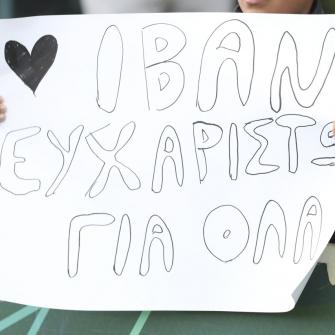 ΙΒΑΝ
ΕΥΧΑΡΙΣΤΩ
ΓΙΑ ΟΛΑ